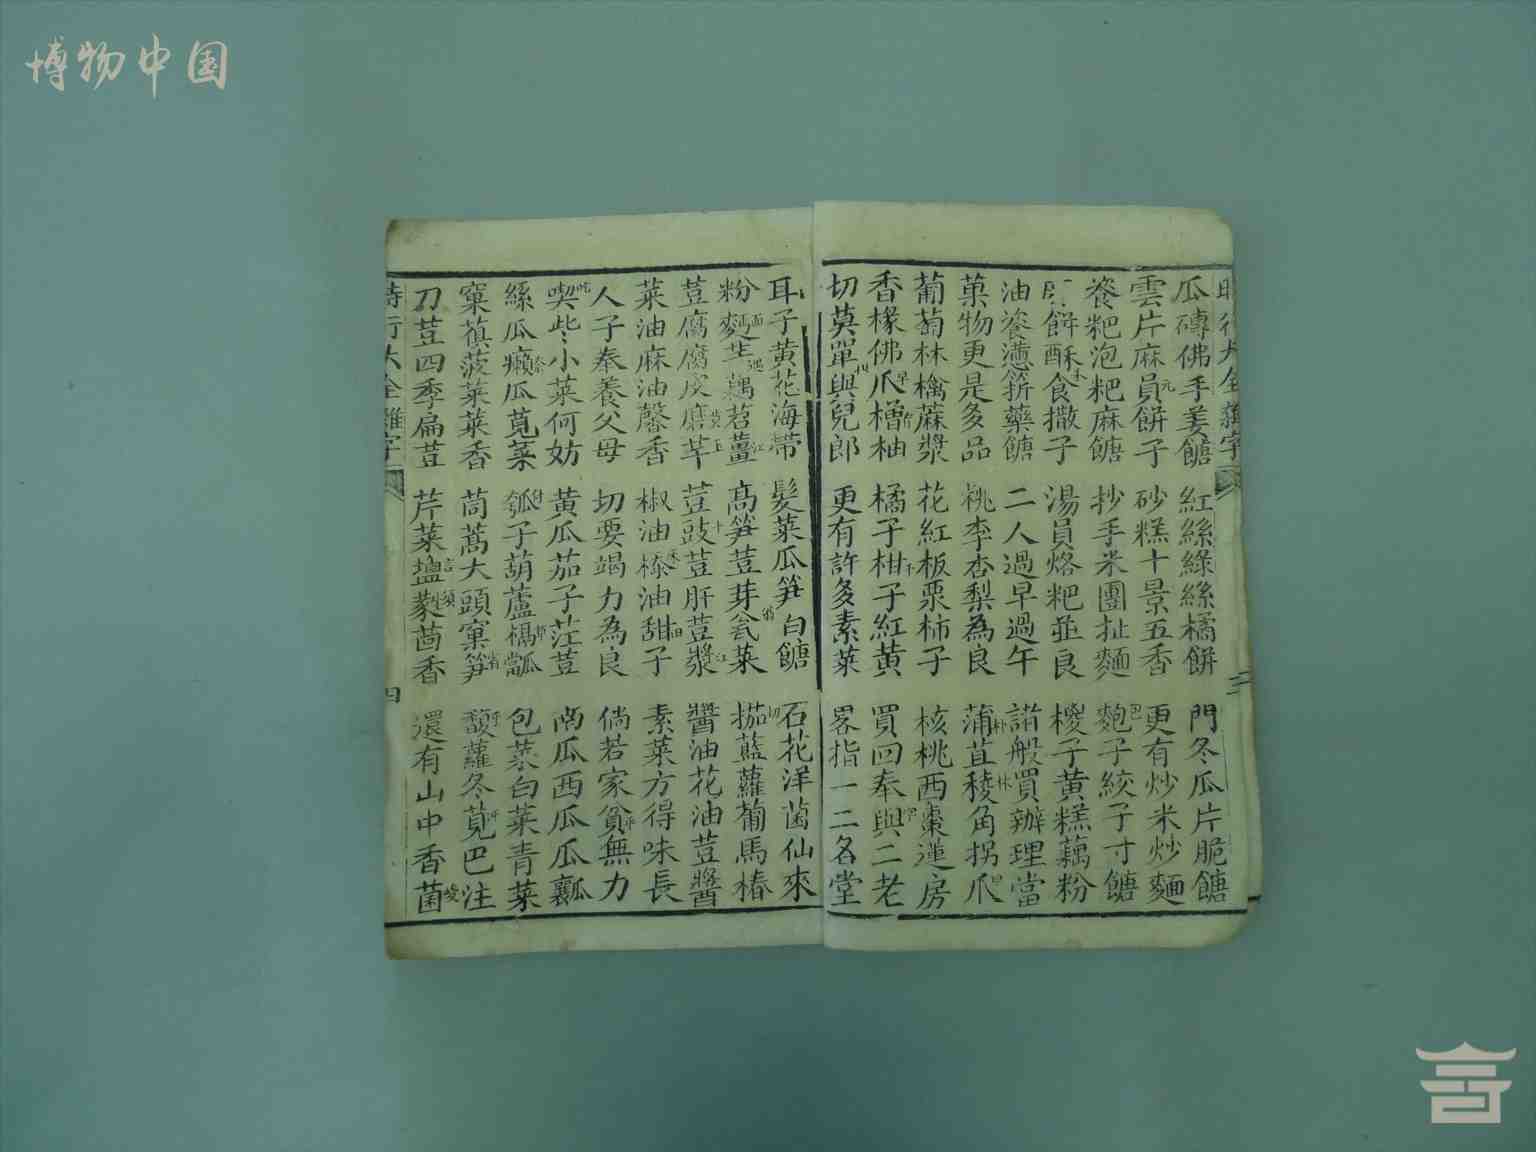 博物中国
瓜磚佛手姜餹 紅絲綠絲橘餅 門冬瓜片脆餹
雲片麻員餅子 砂糕十景五香 更有炒米炒麵
餈粑泡粑麻餹 抄手米團扯麵 麭子絞子寸餹
餅酥食撒子 湯員烙粑並良 糉子黃糕藕粉
油餈薳䉼藥餹 二人過早過午 諸般買辦理當
菓物更是多品 桃李杏梨為良 蒲苴稜角拐爪
葡萄林檎蔴漿 花紅板栗柿子 核桃西棗蓮房
香櫞佛爪橧柚 橘子柑子紅黃 買回奉與二老
切莫單與兒郎 更有許多素菜 畧指一二名堂
耳子黃花海帶 髮菜瓜笋白餹 石花洋菌仙來
粉麫芏藕苕薑 高笋荳芽瓮菜 茄藍蘿蔔馬椿
荳腐腐皮磨芋 荳豉荳肝荳漿 醬油花油荳醬
菜油麻油馨香 椒油㮕油甜子 素菜方得味長
人子奉養父母 切要竭力為良 倘若家貧無力
喫些小菜何妨 黃瓜茄子茳荳 南瓜西瓜瓜瓤
絲瓜癩瓜莧菜 瓠子葫蘆㭴瓢 包菜白菜青菜
窠蕻菠菜菜香 茼蒿大頭窠笋 馥蘿冬莧巴注
刀荳四季扁荳 芹菜塩蔆茴香 還有山中香菌
時行大全雜字
四
時行大全雜字
三